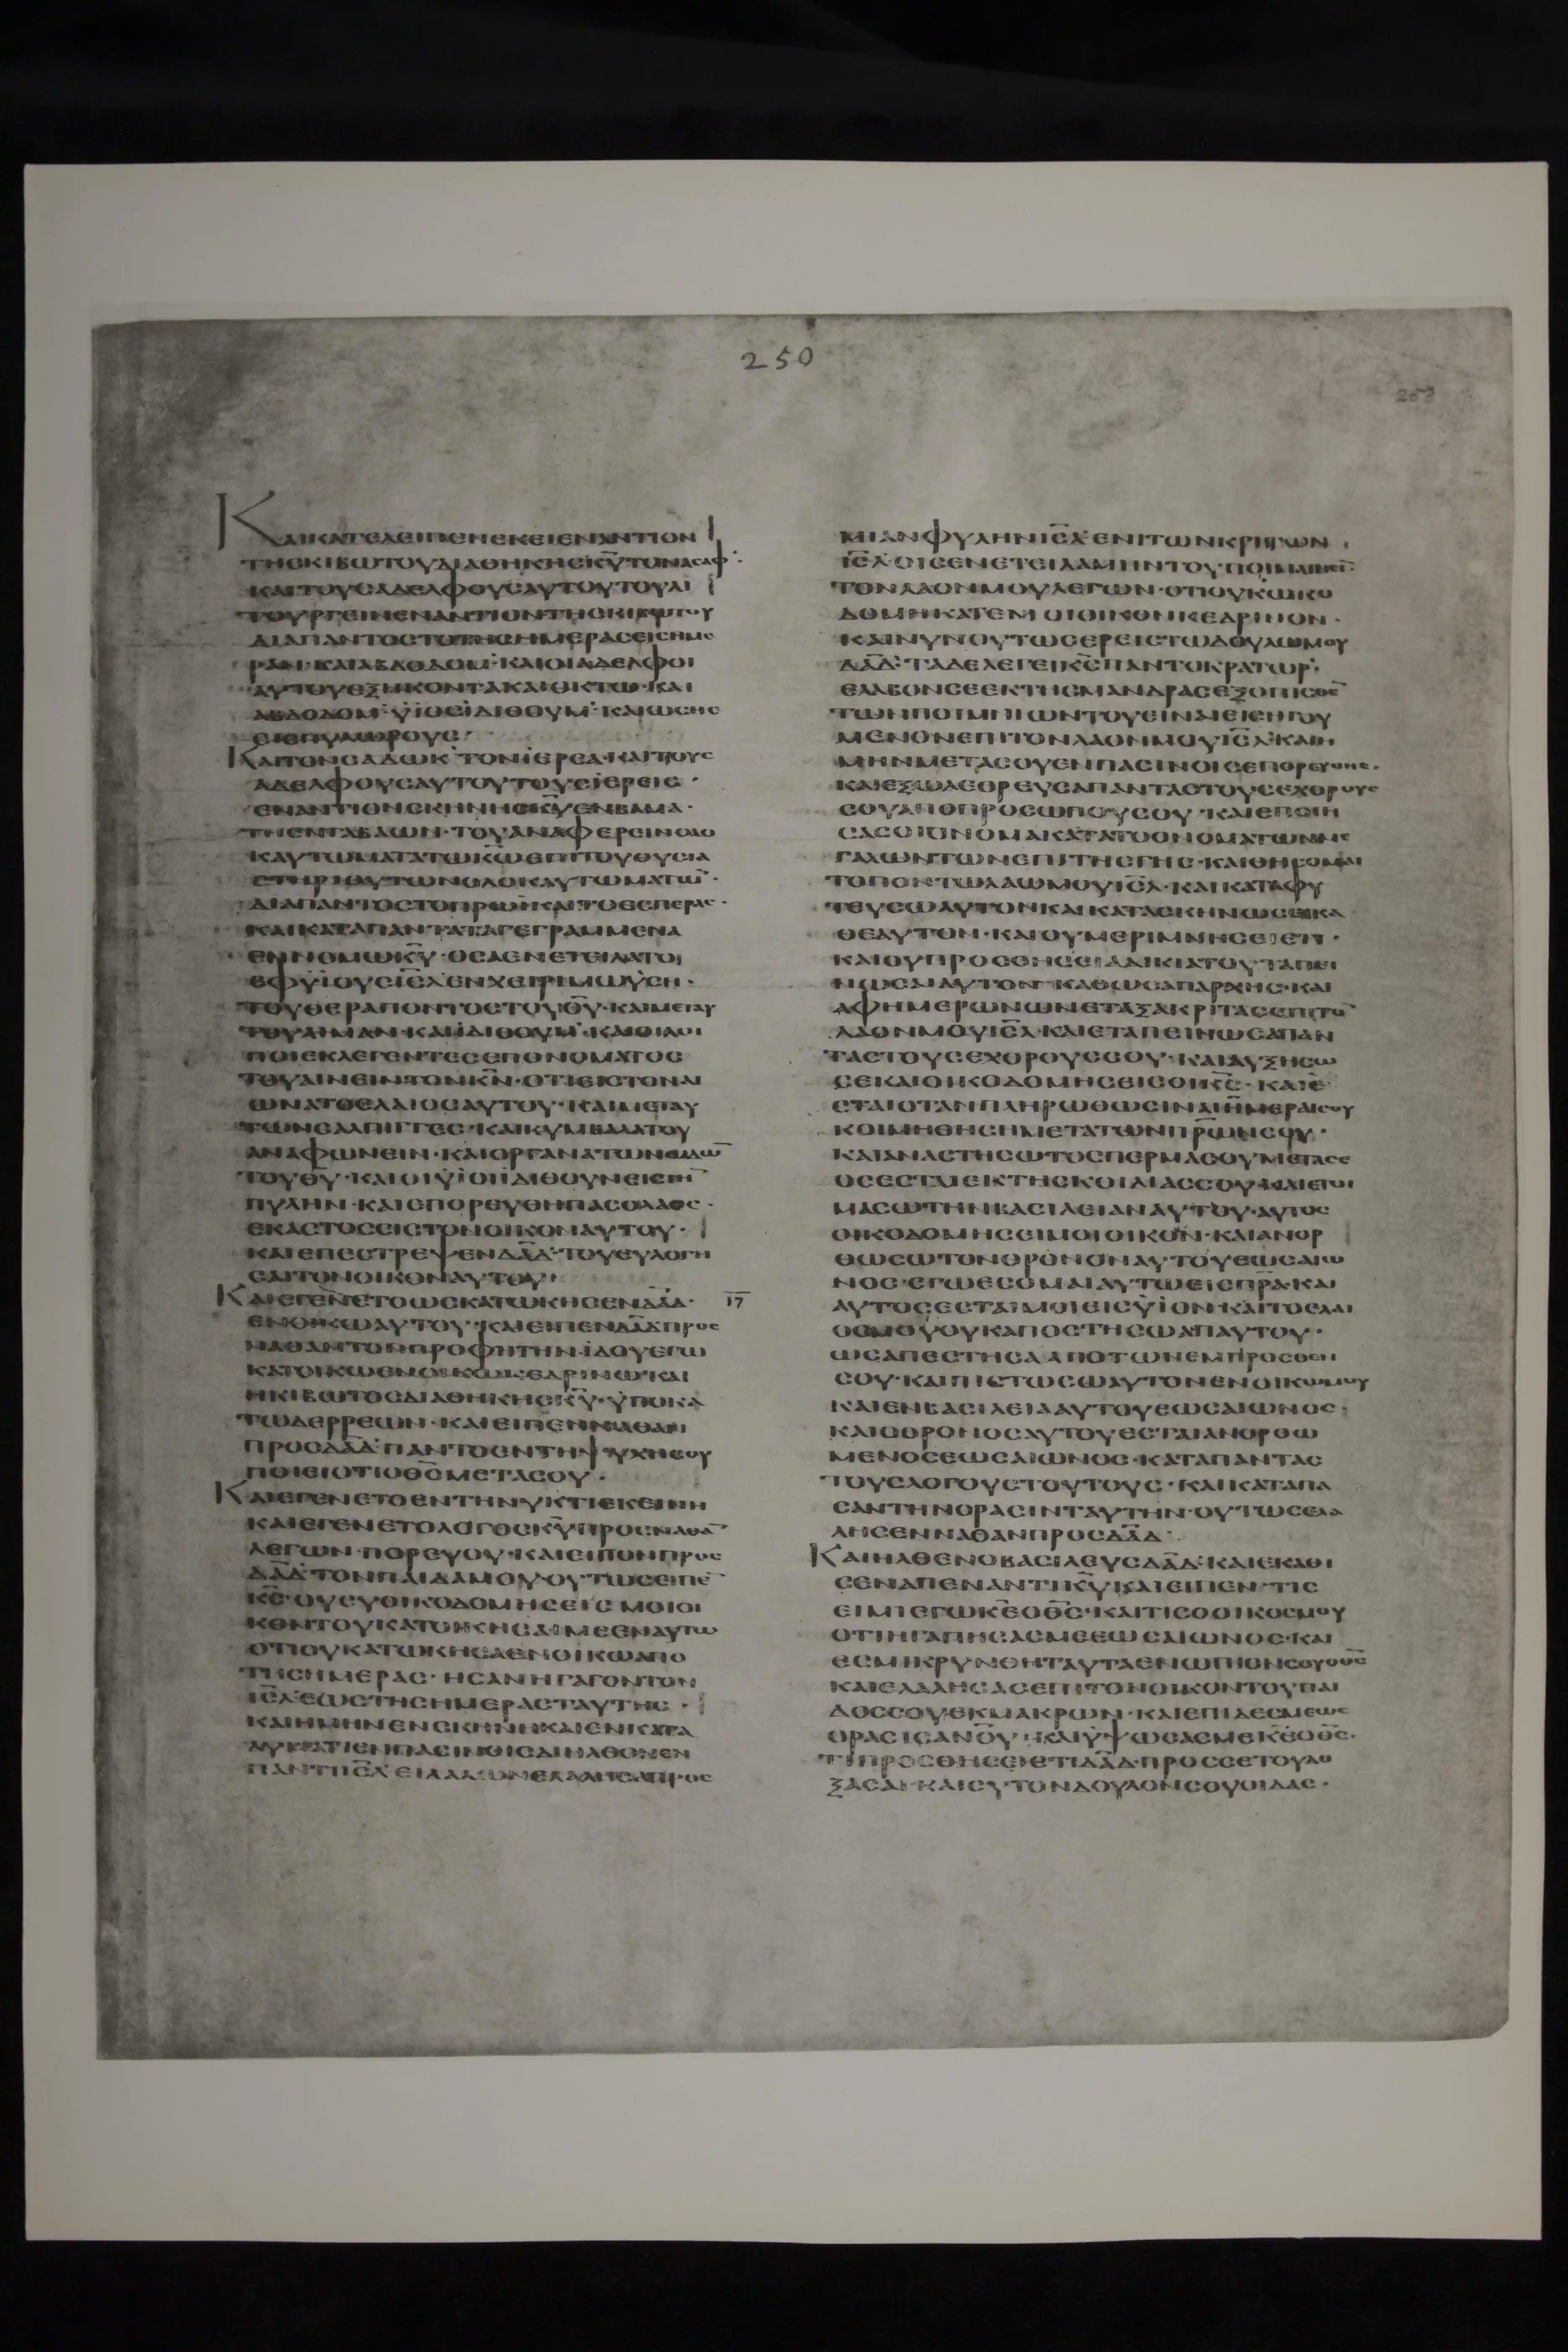 250
ΚΑΙΚΑΤΕΛΕΙΠΕΝΕΚΕΙΕΝΑΝΤΙΟΝ
ΤΗСΚΙΒΩΤΟΥΔΙΑΘΗΚΗСΚ̅Υ̅ΤΟΝΑСΑΦ·
ΚΑΙΤΟΥСΑΔΕΛΦΟΥСΑΥΤΟΥΤΟΥΛΙ
ΤΟΥΡΓΕΙΝΕΝΑΝΤΙΟΝΤΗСΚΙΒΩΤΟΥ
ΔΙΑΠΑΝΤΟСΤΟΤΗСΗΜΕΡΑСΕΙСΗΜΕ
ΡΑΝ·ΚΑΙΑΒΔΟΔΟΜ·ΚΑΙΟΙΑΔΕΛΦΟΙ
ΑΥΤΟΥΕΞΗΚΟΝΤΑΚΑΙΟΚΤΩ·ΚΑΙ
ΑΒΔΟΔΟΜ·ΥΙΟСΙΔΙΘΟΥΜ·ΚΑΙΩСΗΕ
ΕΙСΠΥΛΩΡΟΥС·
ΚΑΙΤΟΝСΑΔΩΚ·ΤΟΝΙΕΡΕΑ·ΚΑΙΤΟΥС
ΑΔΕΛΦΟΥСΑΥΤΟΥΤΟΥСΙΕΡΕΙС·
ΕΝΑΝΤΙΟΝСΚΗΝΗСΚ̅Υ̅ΕΝΒΑΜΑ·
ΤΗΕΝΓΑΒΑΩΝ·ΤΟΥΑΝΑΦΕΡΕΙΝΟΛΟ
ΚΑΥΤΩΜΑΤΑΤΩΚ̅Ω̅ΕΠΙΤΟΥΘΥСΙΑ
СΤΗΡΙΟΥΤΩΝΟΛΟΚΑΥΤΩΜΑΤΩ̅·
ΔΙΑΠΑΝΤΟСΤΟΠΡΩΙΚΑΙΤΟΕСΠΕΡΑС·
ΚΑΙΚΑΤΑΠΑΝΤΑΤΑΓΕΓΡΑΜΜΕΝΑ
ΕΝΝΟΜΩΚ̅Υ̅·ΟСΑΕΝΕΤΕΙΛΑΤΟ
ΕΦΥΙΟΥСΙ̅С̅Λ̅ΕΝΧΕΙΡΙΜΩΥСΗ·
ΤΟΥΘΕΡΑΠΟΝΤΟСΤΟΥΘ̅Υ̅·ΚΑΙΜΕΤΑΥ
ΤΟΥΑΙΜΑΝ·ΚΑΙΙΔΙΘΟΥΜ·ΚΑΙΟΙΛΟΙ
ΠΟΙΕΚΛΕΓΕΝΤΕСΕΠΟΝΟΜΑΤΟС
ΤΟΥΑΙΝΕΙΝΤΟΝΚ̅Ν̅·ΟΤΙΕΙСΤΟΝΑΙ
ΩΝΑΤΟΕΛΑΙΟСΑΥΤΟΥ·ΚΑΙΜΕΤΑΥ
ΤΩΝСΑΛΠΙΓΓΕС·ΚΑΙΚΥΜΒΑΛΑΤΟΥ
ΑΝΑΦΩΝΕΙΝ·ΚΑΙΟΡΓΑΝΑΤΩΝΩΔΩ̅
ΤΟΥΘ̅Υ̅·ΚΑΙΟΙΥΙΟΙΙΔΙΘΟΥΝΕΙСΤΗ̅
ΠΥΛΗΝ·ΚΑΙΕΠΟΡΕΥΘΗΠΑСΟΛΑΟС·
ΕΚΑСΤΟСΕΙСΤΟΝΟΙΚΟΝΑΥΤΟΥ·
ΚΑΙΕΠΕСΤΡΕΨΕΝΔ̅Α̅Δ̅·ΤΟΥΕΥΛΟΓΗ
СΑΙΤΟΝΟΙΚΟΝΑΥΤΟΥ·
ΚΑΙΕΓΕΝΕΤΟΩСΚΑΤΩΚΗСΕΝΔ̅Α̅Δ̅· 17
ΕΝΟΙΚΩΑΥΤΟΥ·ΚΑΙΕΙΠΕΝΔ̅Α̅Δ̅ΠΡΟС
ΝΑΘΑΝΤΟΝΠΡΟΦΗΤΗΝ·ΙΔΟΥΕΓΩ
ΚΑΤΟΙΚΩΕΝΟΙΚΩΚΕΔΡΙΝΩ·ΚΑΙ
ΗΚΙΒΩΤΟСΔΙΑΘΗΚΗСΚ̅Υ̅·ΥΠΟΚΑ
ΤΩΔΕΡΡΕΩΝ·ΚΑΙΕΙΠΕΝΝΑΘΑΝ
ΠΡΟСΔ̅Α̅Δ̅ΠΑΝΤΟΕΝΤΗΨΥΧΗСΟΥ
ΠΟΙΕΙΟΤΙΟΘ̅С̅ΜΕΤΑСΟΥ·
ΚΑΙΕΓΕΝΕΤΟΕΝΤΗΝΥΚΤΙΕΚΕΙΝΗ
ΚΑΙΕΓΕΝΕΤΟΛΟΓΟСΚ̅Υ̅ΠΡΟСΝΑΘΑ̅
ΛΕΓΩΝ·ΠΟΡΕΥΟΥ·ΚΑΙΕΙΠΟΝΠΡΟС
Δ̅Α̅Δ̅ΤΟΝΠΑΙΔΑΜΟΥ·ΟΥΤΩСΕΙΠΕ̅
Κ̅С̅·ΟΥСΥΟΙΚΟΔΟΜΗСΕΙСΜΟΙΟΙ
ΚΟΝΤΟΥΚΑΤΟΙΚΗСΑΙΜΕΕΝΑΥΤΩ
ΟΤΙΟΥΚΑΤΩΚΗСΑΕΝΟΙΚΩΑΠΟ
ΤΗСΗΜΕΡΑС·ΗСΑΝΗΓΑΓΟΝΤΟΝ
Ι̅С̅Λ̅·ΕΩСΤΗСΗΜΕΡΑСΤΑΥΤΗС·
ΚΑΙΗΜΗΝΕΝСΚΗΝΗΚΑΙΕΝΚΑΤΑ
ΛΥΜΑΤΙΕΝΠΑСΙΝΟΙСΔΙΗΛΘΟΝΕΝ
ΠΑΝΤΙΙ̅С̅Λ̅·ΕΙΛΑΛΩΝΕΛΑΛΗСΑΠΡΟС
ΜΙΑΝΦΥΛΗΝΙ̅С̅Λ̅·ΕΝΙΤΩΝΚΡΙΤΩΝ
Ι̅С̅Λ̅·ΟΙСΕΝΕΤΕΙΛΑΜΗΝΤΟΥΠΟΙΜΑΙΝΕΙ̅
ΤΟΝΛΑΟΝΜΟΥΛΕΓΩΝ·ΟΤΙΟΥΚΩΚΟ
ΔΟΜΗΚΑΤΕΜΟΙΟΙΚΟΝΚΕΔΡΙΝΟΝ·
ΚΑΙΝΥΝΟΥΤΩСΕΡΕΙСΤΩΔΟΥΛΩΜΟΥ
Δ̅Α̅Δ̅·ΤΑΔΕΛΕΓΕΙΚ̅С̅ΠΑΝΤΟΚΡΑΤΩΡ·
ΕΛΑΒΟΝСΕΕΚΤΗСΜΑΝΔΡΑСΕΞΟΠΙСΘΕ̅
ΤΩΝΠΟΙΜΝΙΩΝΤΟΥΕΙΝΑΙΕΙСΗΓΟΥ
ΜΕΝΟΝΕΠΙΤΟΝΛΑΟΝΜΟΥΙ̅С̅Λ̅·ΚΑΙΗ
ΜΗΝΜΕΤΑСΟΥΕΝΠΑСΙΝΟΙСΕΠΟΡΕΥΘΗС·
ΚΑΙΕΞΩΛΕΘΡΕΥСΑΠΑΝΤΑСΤΟΥСΕΧΘΡΟΥС
СΟΥΑΠΟΠΡΟСΩΠΟΥСΟΥ·ΚΑΙΕΠΟΙΗ
СΑСΟΙΟΝΟΜΑΚΑΤΑΤΟΟΝΟΜΑΤΩΝΜΕ
ΓΑΛΩΝΤΩΝΕΠΙΤΗСΓΗС·ΚΑΙΘΗСΟΜΑΙ
ΤΟΠΟΝΤΩΛΑΩΜΟΥΙ̅С̅Λ̅·ΚΑΙΚΑΤΑΦΥ
ΤΕΥСΩΑΥΤΟΝΚΑΙΚΑΤΑСΚΗΝΩСΕΙΚΑ
ΘΕΑΥΤΟΝ·ΚΑΙΟΥΜΕΡΙΜΝΗСΕΙΕΤΙ·
ΚΑΙΟΥΠΡΟСΘΗСΕΙΑΔΙΚΙΑΤΟΥΤΑΠΕΙ
ΝΩСΑΙΑΥΤΟΝ·ΚΑΘΩСΑΠΑΡΧΗС·ΚΑΙ
ΑΦΗΜΕΡΩΝΩΝΕΤΑΞΑΚΡΙΤΑСΕΠΙΤΟ̅
ΛΑΟΝΜΟΥΙ̅С̅Λ̅·ΚΑΙΕΤΑΠΕΙΝΩСΑΠΑΝ
ΤΑСΤΟΥСΕΧΘΡΟΥССΟΥ·ΚΑΙΑΥΞΗСΩ
СΕΚΑΙΟΙΚΟΔΟΜΗСΕΙСΟΙΚ̅С̅·ΚΑΙΕ
СΤΑΙΟΤΑΝΠΛΗΡΩΘΩСΙΝΑΙΗΜΕΡΑΙСΟΥ
ΚΟΙΜΗΘΗСΗΜΕΤΑΤΩΝΠ̅Ρ̅Ω̅Ν̅СΟΥ·
ΚΑΙΑΝΑСΤΗСΩΤΟСΠΕΡΜΑСΟΥΜΕΤΑСΕ
ΟСΕСΤΑΙΕΚΤΗСΚΟΙΛΙΑССΟΥ·ΚΑΙΕΤΟΙ
ΜΑСΩΤΗΝΒΑСΙΛΕΙΑΝΑΥΤΟΥ·ΑΥΤΟС
ΟΙΚΟΔΟΜΗСΕΙΜΟΙΟΙΚΟΝ·ΚΑΙΑΝΟΡ
ΘΩСΩΤΟΝΘΡΟΝΟΝΑΥΤΟΥΕΩСΑΙΩ
ΝΟС·ΕΓΩΕСΟΜΑΙΑΥΤΩΕΙСΠ̅Ρ̅Α̅·ΚΑΙ
ΑΥΤΟСΕСΤΑΙΜΟΙΕΙСΥΙΟΝ·ΚΑΙΤΟΕΛΑΙ
ΟСΜΟΥΟΥΚΑΠΟСΤΗСΩΑΠΑΥΤΟΥ·
ΩСΑΠΕСΤΗСΑΑΠΟΤΩΝΕΜΠΡΟСΘΕΝ
СΟΥ·ΚΑΙΠΙСΤΩСΩΑΥΤΟΝΕΝΟΙΚΩΜΟΥ
ΚΑΙΕΝΒΑСΙΛΕΙΑΑΥΤΟΥΕΩСΑΙΩΝΟС·
ΚΑΙΟΘΡΟΝΟСΑΥΤΟΥΕСΤΑΙΑΝΟΡΘΩ
ΜΕΝΟСΕΩСΑΙΩΝΟС·ΚΑΤΑΠΑΝΤΑС
ΤΟΥСΛΟΓΟΥСΤΟΥΤΟΥС·ΚΑΙΚΑΤΑΠΑ
СΑΝΤΗΝΟΡΑСΙΝΤΑΥΤΗΝ·ΟΥΤΩСΕΛΑ
ΛΗСΕΝΝΑΘΑΝΠΡΟСΔ̅Α̅Δ̅·
ΚΑΙΗΛΘΕΝΟΒΑСΙΛΕΥСΔ̅Α̅Δ̅·ΚΑΙΕΚΑΘΙ
СΕΝΑΠΕΝΑΝΤΙΚ̅Υ̅ΚΑΙΕΙΠΕΝ·ΤΙС
ΕΙΜΙΕΓΩΚ̅Ε̅ΟΘ̅С̅·ΚΑΙΤΙСΟΟΙΚΟСΜΟΥ
ΟΤΙΗΓΑΠΗСΑСΜΕΕΩСΑΙΩΝΟС·ΚΑΙ
ΕСΜΙΚΡΥΝΘΗΤΑΥΤΑΕΝΩΠΙΟΝСΟΥΟΘ̅С̅
ΚΑΙΕΛΑΛΗСΑСΕΠΙΤΟΝΟΙΚΟΝΤΟΥΠΑΙ
ΔΟССΟΥΕΚΜΑΚΡΩΝ·ΚΑΙΕΠΙΔΕСΜΕΩС
ΟΡΑСΙСΑΝ̅Ο̅Υ̅·ΚΑΙΥΨΩСΑСΜΕΚ̅Ε̅ΟΘ̅С̅·
ΤΙΠΡΟСΘΗСΕΙΕΤΙΔ̅Α̅Δ̅·ΠΡΟССΕΤΟΥΔΟ
ΞΑСΑΙ·ΚΑΙСΥΤΟΝΔΟΥΛΟΝСΟΥΟΙΔΑС·